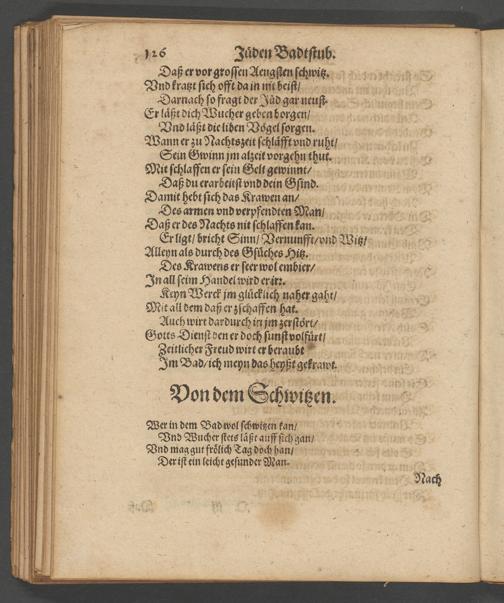 126 Jüden Badtstub.
Daß er vor grossen Aengsten schwitz.
Vnd kratzt sich offt da in nit beist/
Darnach so fragt der Jüd gar neust.
Er läßt dich Wucher geben borgen/
Vnd läßt die liben Vögel sorgen.
Wann er zu Nachtszeit schläfft vnd ruht/
Sein Gwinn jm alzeit vorgehn thut.
Mit schlaffen er sein Gelt gewinnt/
Daß du erarbeitst vnd dein Gsind.
Damit hebt sich das Krawen an/
Des armen vnd verpfendten Man/
Daß er des Nachts nit schlaffen kan.
Er ligt/ bricht Sinn/ Vernunfft/ vnd Witz/
Alleyn als durch des Gsüches Hitz.
Des Krawens er seer wol embier/
In all seim Handel wird er irr.
Keyn Werck jm glücklich naher gaht/
Mit all dem daß er zschaffen hat.
Auch wirt dardurch in jm zerstört/
Gotts Dienst den er doch sunst volfürt/
Zeitlicher Freud wirt er beraubt
Im Bad/ ich meyn das heyßt gekrawt.
Von dem Schwitzen.
Wer in dem Bad wol schwitzen kan/
Vnd Wucher stets läßt auff sich gan/
Vnd mag gut frölich Tag doch han/
Der ist ein leicht gesunder Man.
Nach